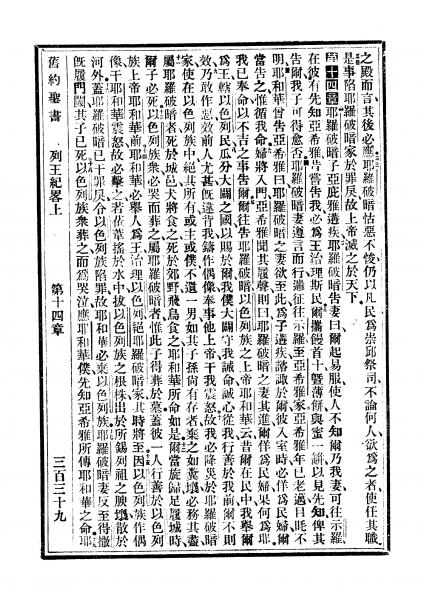 之殿而言其後必應○耶羅破暗怙惡不悛仍以凡民為崇邱祭司不論何人欲為之者使任其職
是事陷耶羅破暗家於罪戾故上帝滅之於天下
第十四章耶羅破暗子亞庇雅遘疾耶羅破暗告妻曰爾起易服使人不知爾乃我妻可往示羅
在彼有先知亞希雅昔嘗告我必為王治理斯民爾攜饅首十暨薄餅與蜜一缾以見先知俾其
告爾我子可得愈否耶羅破暗妻遵言而行遄征往示羅至亞希雅家亞希雅年已老邁目眊不
明耶和華曾告亞希雅曰耶羅破暗之妻欲至此為子遘疾諮諏於爾彼入至時必佯為民婦爾
當告之惟循我命婦將入門亞希雅聞其履聲則曰耶羅破暗之妻其進爾佯為民婦果何為耶
我已奉命以不吉之事告爾爾往告耶羅破暗以色列族之上帝耶和華云昔爾在民中我舉爾
為王轄以色列民瓜分大闢之國以賜於爾我僕大闢守我誡命誠心從我行善於我前爾不則
效乃敢作惡效前人尤甚旣違背我鑄作偶像奉事他上帝干我震怒故我必降災於耶羅破暗
家使在以色列族中絕其所有或主或僕不遺一男如其子孫尚有存者棄之如糞壤必務其盡
屬耶羅破暗者死於城邑犬將食之死於郊野飛鳥食之耶和華所命如是爾當旋歸足履城時
爾子必死以色列族眾必哭而葬之屬耶羅破暗者惟此子得葬於墓蓋彼一人行善於以色列
族上帝耶和華前耶和華必舉人為王治理以色列絕耶羅破暗家其時將至因以色列族作偶
像干耶和華震怒故必擊之若葦搖於水中拔以色列族之根株出於所錫列祖之腴壤散於
河外蓋耶羅破暗已干罪戾令以色列族陷罪故耶和華必棄以色列族耶羅破暗妻反至得撒
旣履門閾其子已死以色列族眾葬之而為哭泣應耶和華僕先知亞希雅所傳耶和華之命耶
舊約聖書 列王紀畧上 第十四章 三百三十九